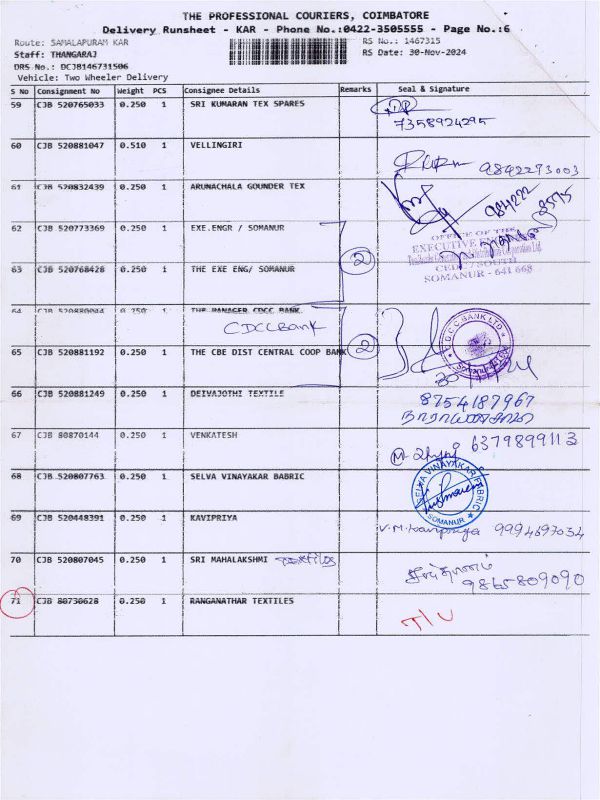 THE PROFESSIONAL COURIERS, COIMBATORE
Delivery Runsheet - KAR - Phone No.:0422-3505555 - Page No.:6
Route: SAMALAPURAM KAR RS No.: 1467315
Staff: THANGARAJ RS Date: 30-Nov-2024
DRS No.: DCJB146731506
Vehicle: Two Wheeler Delivery
S No Consignment No Weight PCS Consignee Details Remarks Seal & Signature
59 CJB 520765033 0.250 1 SRI KUMARAN TEX SPARES
7358924295
60 CJB 520881047 0.510 1 VELLINGIRI
9842273003
61 CJB 520832439 0.250 1 ARUNACHALA GOUNDER TEX
984222 85715
62 CJB 520773369 0.250 1 EXE.ENGR / SOMANUR
OFFICE OF THE
EXECUTIVE ENGINEER
2
63 CJB 520768428 0.250 1 THE EXE ENG/ SOMANUR
SOMANUR - 641 668
64 CJB 520880044 0.250 1 THE MANAGER CDCC BANK
CDCC Bank
C.D.C.C BANK LTD.
2
65 CJB 520881192 0.250 1 THE CBE DIST CENTRAL COOP BANK
66 CJB 520881249 0.250 1 DEIVAJOTHI TEXTILE
8754187967
நாராயணசாமி
67 CJB 80870144 0.250 1 VENKATESH
6379899113
68 CJB 520807763 0.250 1 SELVA VINAYAKAR BABRIC
SELVA VINAYAKAR FABRIC
SOMANUR
69 CJB 520448391 0.250 1 KAVIPRIYA
V.M. Kavipriya 9994697034
70 CJB 520807045 0.250 1 SRI MAHALAKSHMI textiles
9865809090
71 CJB 80730628 0.250 1 RANGANATHAR TEXTILES
T/U